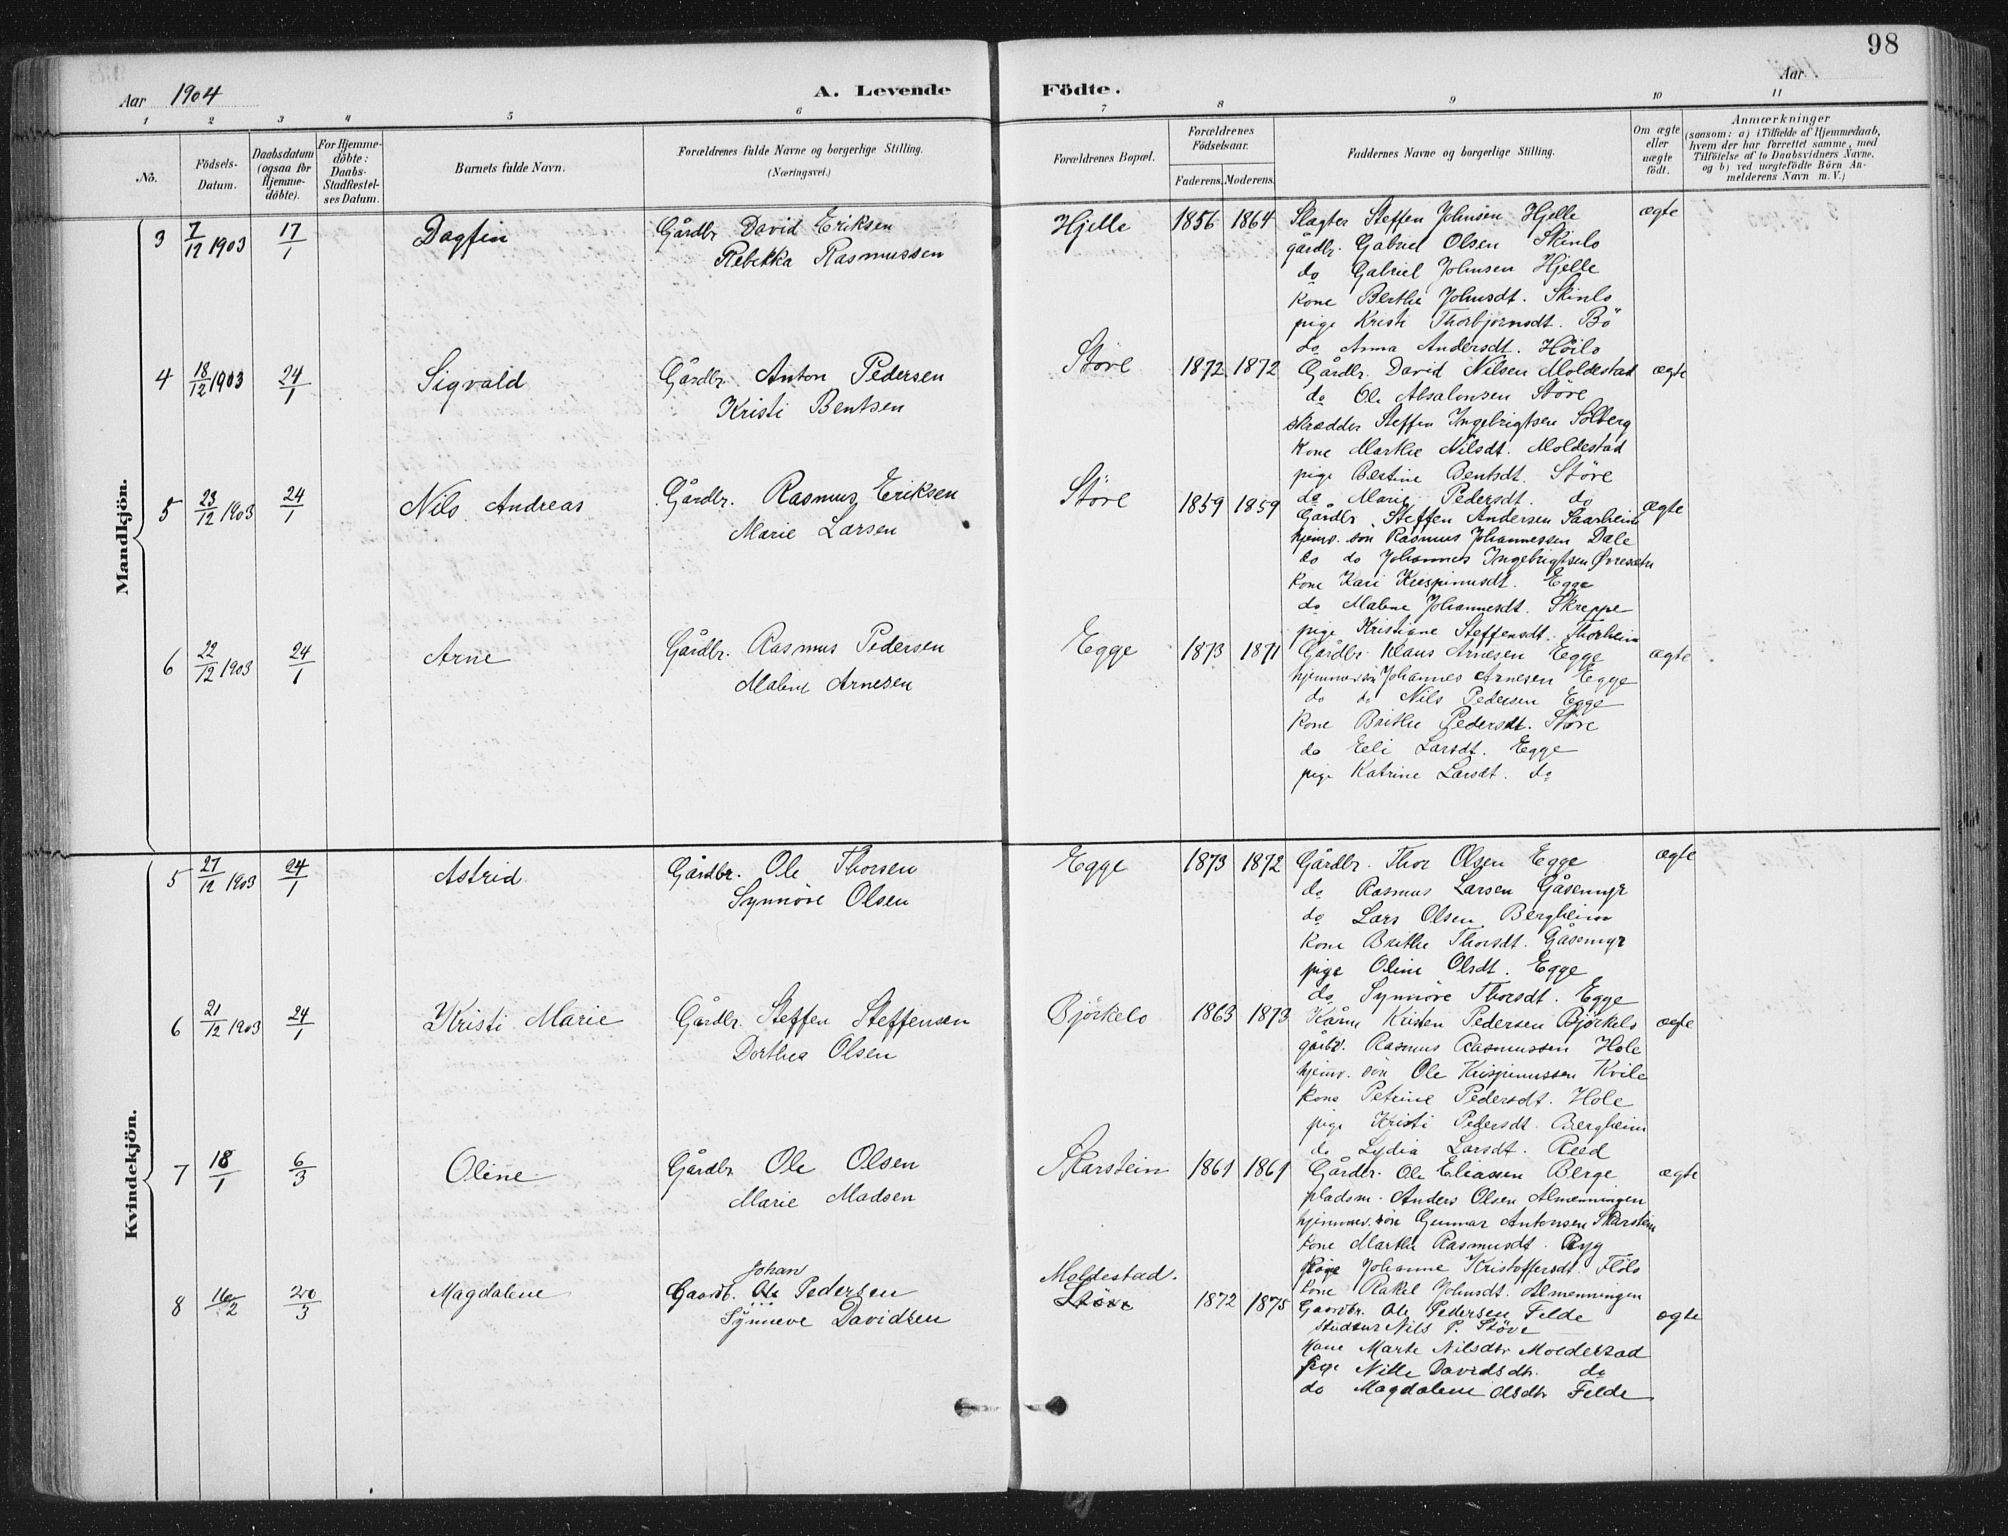 98
Aar 1904
A. Levende Födte.
Aar
1 2 3 4 5 6 7 8 9 10 11
No.
Födsels-Datum.
Daabsdatum (ogsaa for Hjemmedöbte).
For Hjemmedöbte: Daabs-Stadfæstelses Datum.
Barnets fulde Navn.
Forældrenes fulde Navne og borgerlige Stilling.
(Næringsvei.)
Forældrenes Bopæl.
Forældrenes Födselsaar.
Faderens. Moderens.
Faddernes Navne og borgerlige Stilling.
Om ægte eller uægte födt.
Anmærkninger
(saasom: a) i Tilfælde af Hjemmedaab, hvem der har forrettet samme, med Tilföielse af to Daabsvidners Navne, og b) ved uægtefödte Börn Anmelderens Navn m. V.)
Mandkjön.
3 7/12 1903 17/1 Dagfin Gårdbr. David Eriksen Hjelle 1856 1864 Slagter Steffen Johnsen Hjelle ægte
Rebekka Rasmussen gårdbr. Gabriel Olsen Skinlo
do Gabriel Johnsen Hjelle
kone Berthe Johnsdt. Skinlo
pige Kristi Thorbjørnsdt. Bö
do Anna Andersdt. Höilo
4 18/12 1903 24/1 Sigvald Gårdbr. Anton Pedersen Støve 1872 1872 Gårdbr. David Nilsen Moldestad ægte
Kristi Bentsen do Ole Absalonsen Støve
skrædder Steffen Ingebrigtsen Solberg
Kone Marthe Nilsdt. Moldestad
pige Bertine Bentsdt. Støve
do Marie Pedersdt. do
5 23/12 1903 24/1 Nils Andreas Gårdbr. Rasmus Eriksen Støve 1859 1859 Gårdbr. Steffen Andersen Saarheim ægte
Marie Larsen hjemv. søn Rasmus Johannessen Dale
do do Johannes Ingebrigtsen Øvresæter
kone Kari Krispinusdt. Egge
do Malene Johannesdt. Skreppe
pige Kristiane Steffensdt. Thorheim
6 22/12 1903 24/1 Arne Gårdbr. Rasmus Pedersen Egge 1873 1871 Gårdbr. Klaus Arnesen Egge ægte
Malene Arnesen hjemmev. søn Johannes Arnesen Egge
do do Nils Pedersen Egge
kone Brithe Pedersdt. Støve
do Eli Larsdt. Egge
pige Katrine Larsdt. do
Kvindekjön.
5 27/12 1903 24/1 Astrid Gårdbr. Ole Thorsen Egge 1873 1872 Gårdbr. Thor Olsen Egge ægte
Synnöve Olsen do Rasmus Larsen Gåsemyr
do Lars Olsen Bergheim
kone Brithe Thorsdt. Gåsemyr
pige Oline Olsdt. Egge
do Synnöve Thorsdt. Egge
6 21/12 1903 24/1 Kristi Marie Gårdbr. Steffen Steffensen Björkelo 1863 1873 Kårm. Kristen Pedersen Björkelo ægte
Dorthea Olsen gårbr. Rasmus Rasmussen Hole
hjemv. søn Ole Krispinussen Kvile
kone Petrine Pedersdt. Hole
pige Kristi Pedersdt. Bergheim
do Lydia Larsdt. Reed
7 18/1 6/3 Oline Gårdbr. Ole Olsen Skarstein 1861 1861 Gårdbr. Ole Eliassen Berge ægte
Marie Madsen pladsm. Anders Olsen Almenningen
hjemmev. søn Gunnar Antonsen Skarstein
kone Marthe Rasmusdt. Ryg
pige Johanne Kristoffersdt. Flölo
kone Rakel Johnsdt. Almenningen
8 16/2 20/3 Magdalene Gaardb. Ole Johan Pedersen Støve Moldestad. 1872 1875 Gaardbr. Ole Pedersen Felde ægte
Synneve Davidsen student Nils P. Støve
Kone Marte Nilsdtr Moldestad
pige Nille Davidsdtr. do
do Magdalene Olsdtr Felde